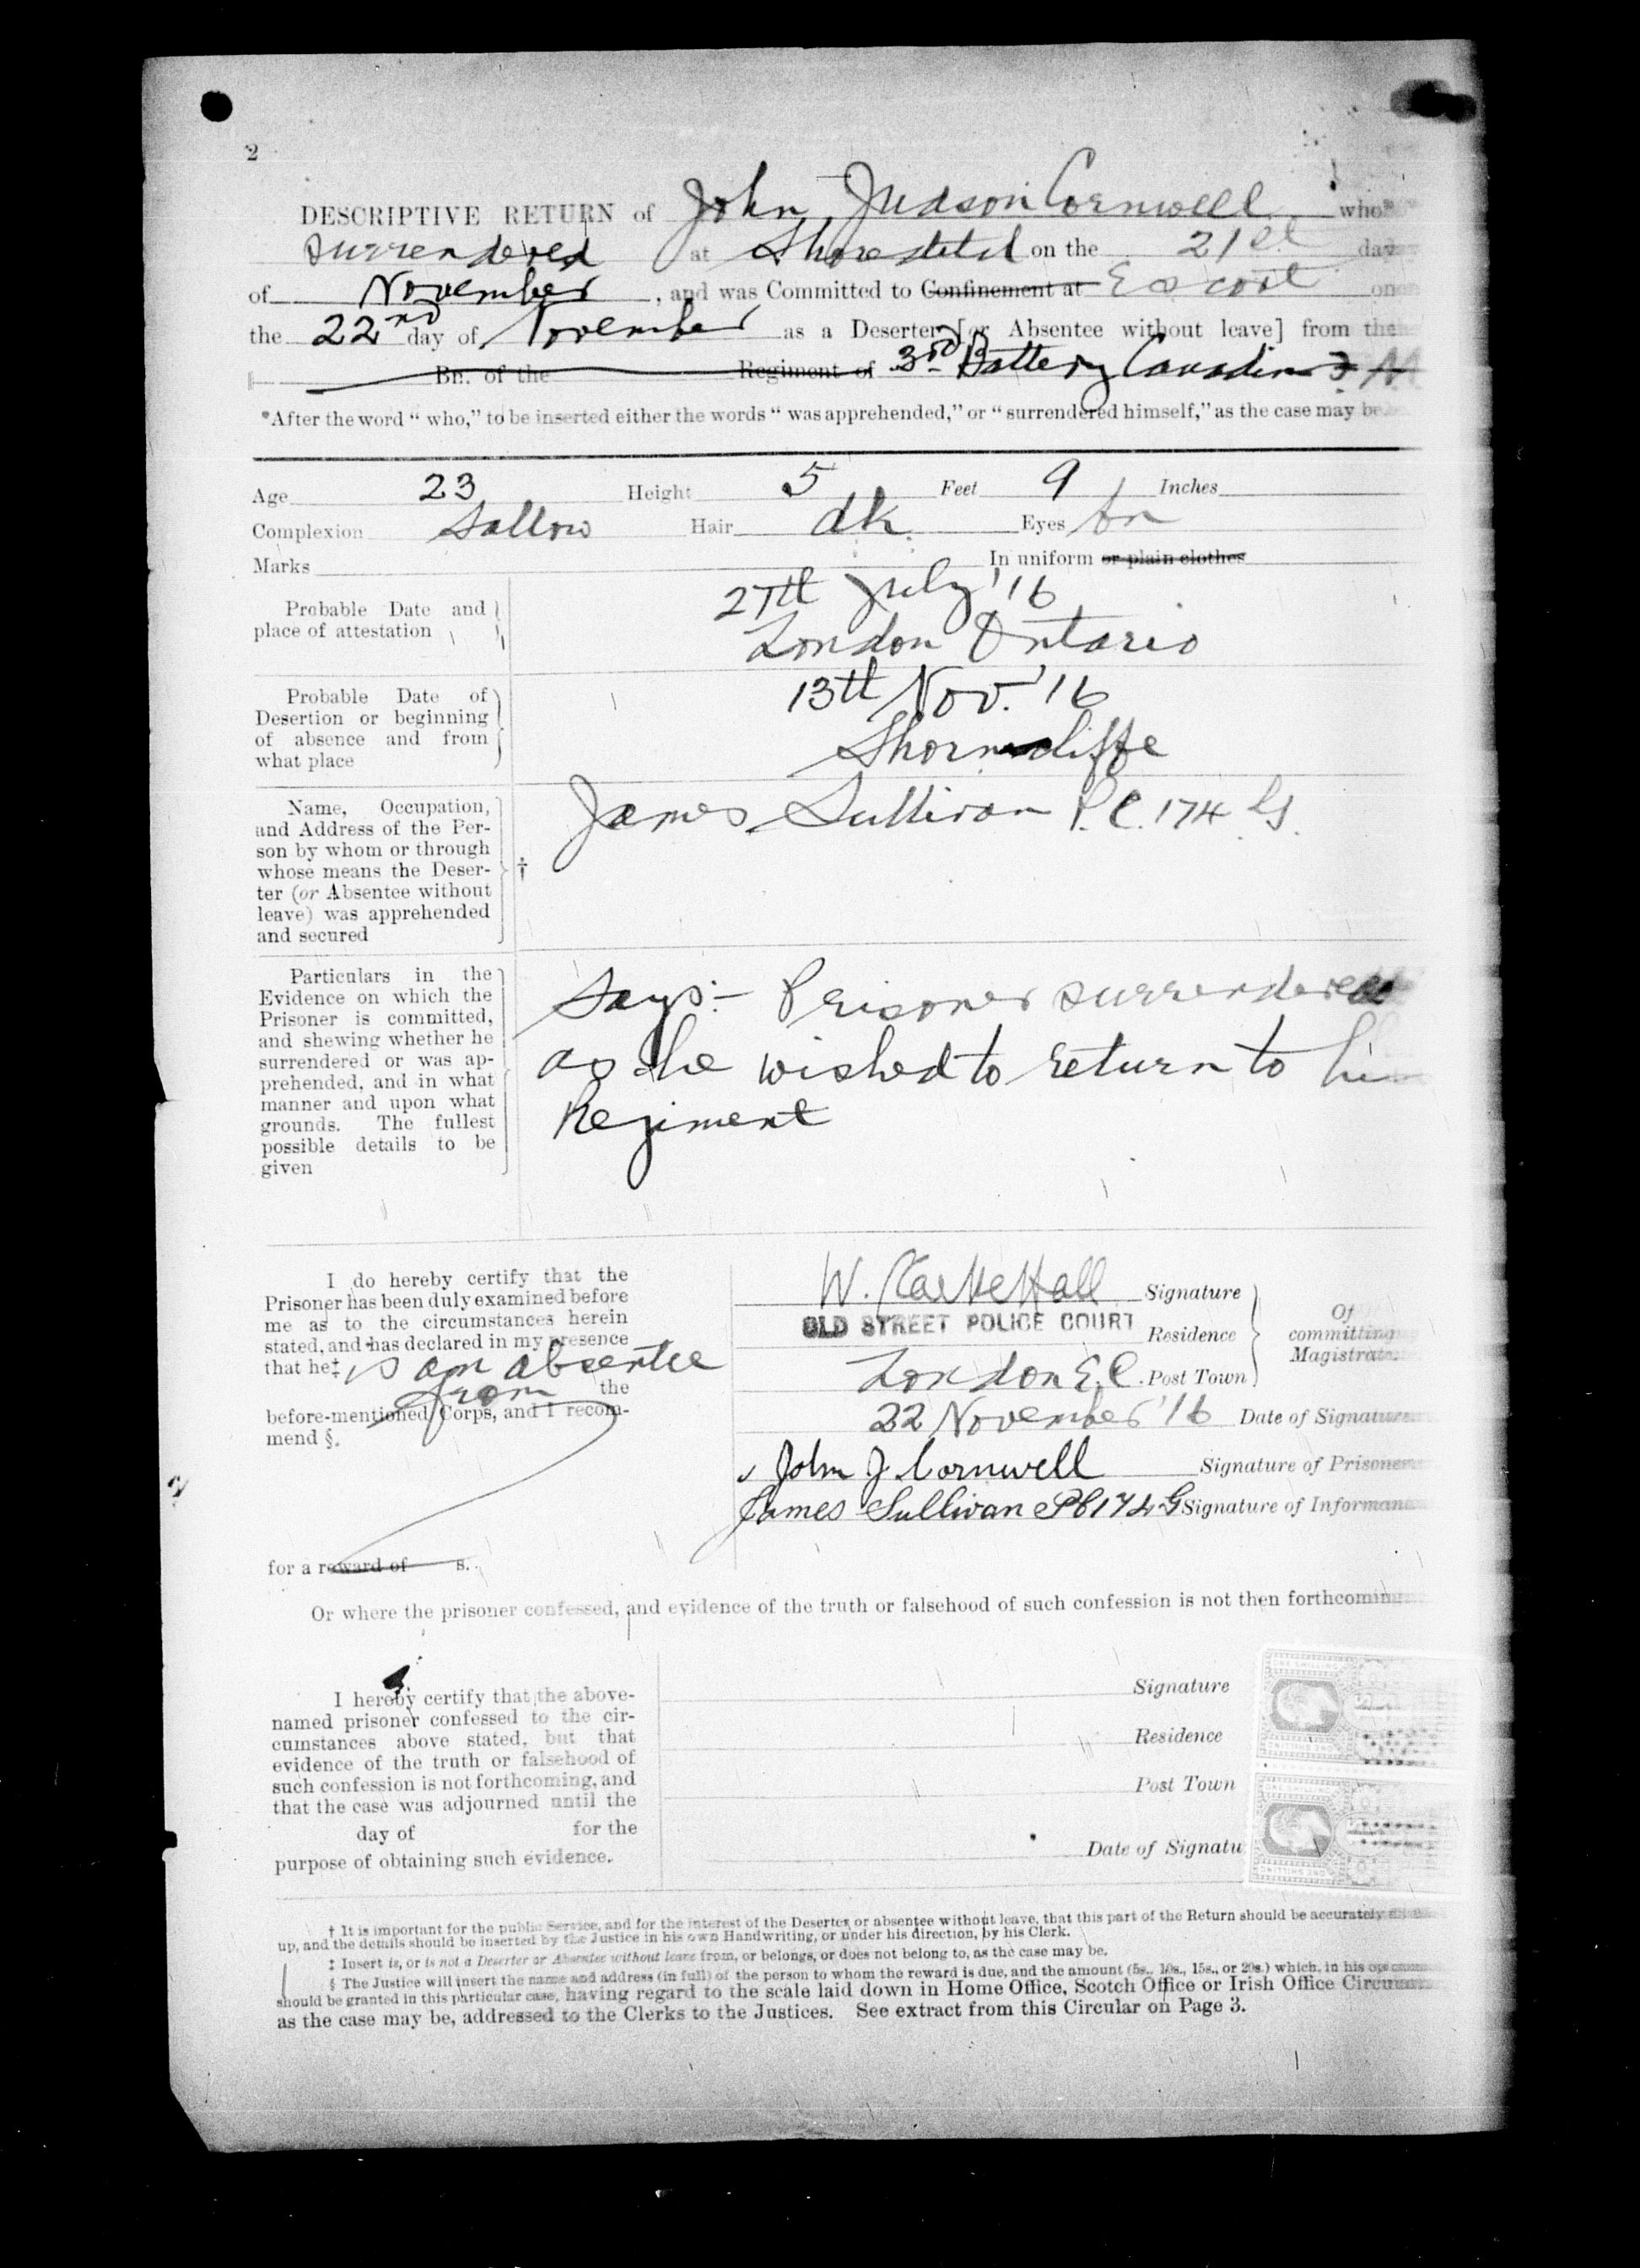 2
DESCRIPTIVE RETURN of John Judson Cornwell who*
surrendered at Shoreditch on the 21st day
of November, and was Committed to Confinement at Escort on
the 22nd day of November as a Deserter [or Absentee without leave] from the
Bn. of the Regiment of 3rd Battery Canadian
*After the word "who," to be inserted either the words "was apprehended," or "surrendered himself," as the case may be.
Age 23 Height 5 Feet 9 Inches
Complexion Sallow Hair dk. Eyes bn
Marks In uniform or plain clothes
Probable Date and
place of attestation
27th July '16
London Ontario
Probable Date of
Desertion or beginning
of absence and from
what place
13th Nov. '16
Shorncliffe
Name, Occupation,
and Address of the Per-
son by whom or through
whose means the Deser-
ter (or Absentee without
leave) was apprehended
and secured
†
James Sullivan P.C. 174 G.
Particulars in the
Evidence on which the
Prisoner is committed,
and shewing whether he
surrendered or was ap-
prehended, and in what
manner and upon what
grounds. The fullest
possible details to be
given
Says:- Prisoner surrendered
as he wished to return to his
Regiment
I do hereby certify that the
Prisoner has been duly examined before
me as to the circumstances herein
stated, and has declared in my presence
that he‡ is an absentee
from the
before-mentioned Corps, and I recom-
mend §.
for a reward of s.
W. Clarke Hall Signature
OLD STREET POLICE COURT Residence
London E.C. Post Town
Of
committing
Magistrate.
22 November '16 Date of Signature
John J Cornwell Signature of Prisoner
James Sullivan PC 174 G Signature of Informant
Or where the prisoner confessed, and evidence of the truth or falsehood of such confession is not then forthcoming
I hereby certify that the above-
named prisoner confessed to the cir-
cumstances above stated, but that
evidence of the truth or falsehood of
such confession is not forthcoming, and
that the case was adjourned until the
day of for the
purpose of obtaining such evidence.
Signature
Residence
Post Town
Date of Signatu
ONE SHILLING
† It is important for the public Service, and for the interest of the Deserter or absentee without leave, that this part of the Return should be accurately
up, and the details should be inserted by the Justice in his own Handwriting, or under his direction, by his Clerk.
‡ Insert is, or is not a Deserter or Absentee without leave from, or belongs, or does not belong to, as the case may be.
§ The Justice will insert the name and address (in full) of the person to whom the reward is due, and the amount (5s., 10s., 15s., or 20s.) which, in his opinion
should be granted in this particular case, having regard to the scale laid down in Home Office, Scotch Office or Irish Office Circular
as the case may be, addressed to the Clerks to the Justices. See extract from this Circular on Page 3.